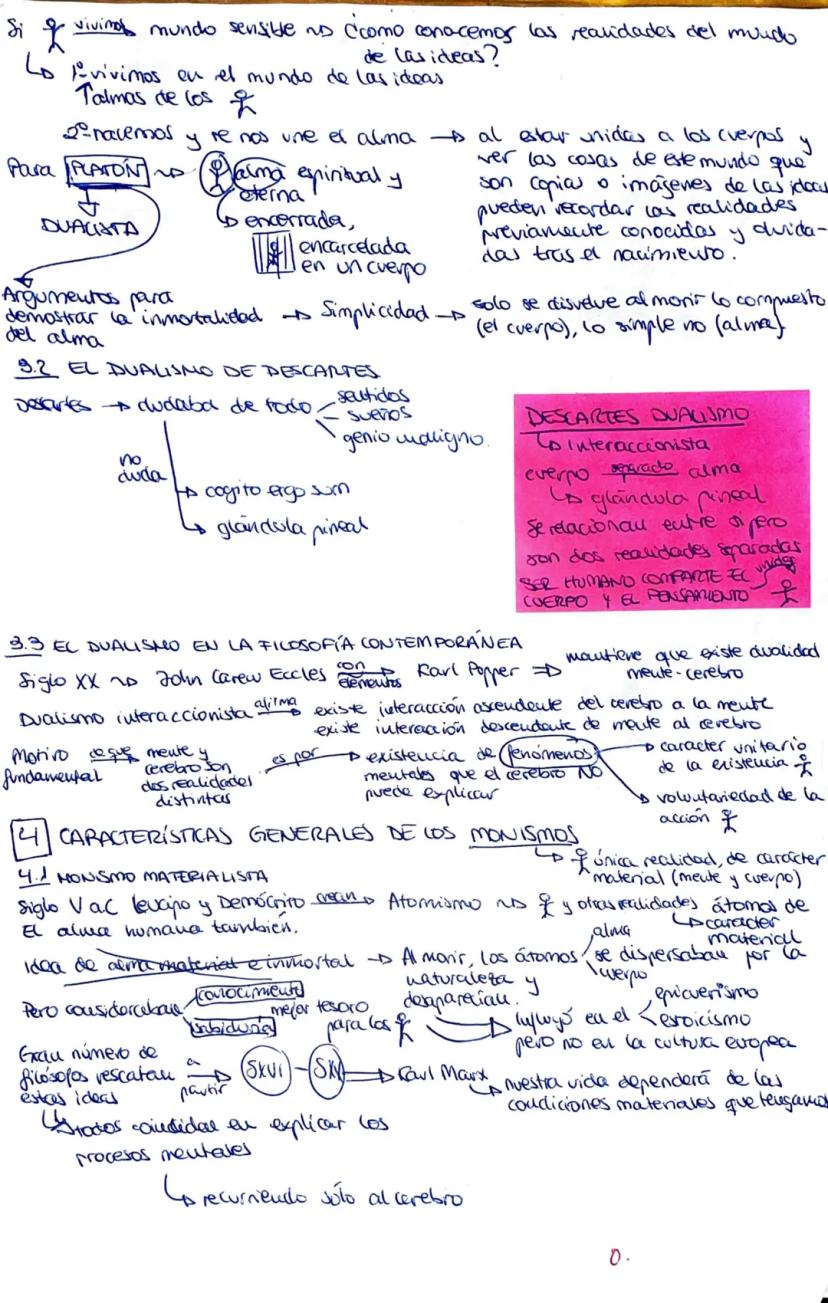 Si vivimos mundo sensible ¿como conocemos las realidades del mundo
de las ideas?
1º vivimos en el mundo de las ideas
almas de los
2º nacemos y se nos une el alma → al estar unidas a los cuerpos y
ver las cosas de este mundo que
son copias o imágenes de las ideas
pueden recordar las realidades
previamente conocidas y olvida-
das tras el nacimiento.
Para PLATÓN alma espiritual y
eterna
DUALISTA
encerrada,
encarcelada
en un cuerpo
Argumentos para
demostrar la inmortalidad → Simplicidad → solo se disuelve al morir lo compuesto
del alma
(el cuerpo), lo simple no (alma)
3.2 EL DUALISMO DE DESCARTES
Descartes → dudaba de todo
sentidos
sueños
genio maligno.
no
duda
cogito ergo sum
glándula pineal
DESCARTES DUALISMO
Interaccionista
cuerpo separado alma
glándula pineal
Se relacionan entre si pero
son dos realidades separadas
unidas
SER HUMANO COMPARTE EL
CUERPO Y EL PENSAMIENTO
3.3 EL DUALISMO EN LA FILOSOFÍA CONTEMPORÁNEA
Siglo XX John Carew Eccles con elementos Karl Popper ⇒ mantiene que existe dualidad
mente-cerebro
Dualismo interaccionista afirma existe interacción ascendente del cerebro a la mente
existe interacción descendente de mente al cerebro
Motivo de que mente y
fundamental cerebro son
dos realidades
distintas
es por → existencia de fenómenos
mentales que el cerebro NO
puede explicar
caracter unitario
de la existencia
voluntariedad de la
acción
4 CARACTERÍSTICAS GENERALES DE LOS MONISMOS
única realidad, de carácter
material (mente y cuerpo)
4.1 MONISMO MATERIALISTA
Siglo V aC Leucipo y Demócrito crean Atomismo y otras realidades átomos de
caracter
material
El alma humana también.
Idea de alma material e inmortal → Al morir, los átomos se dispersaban por la
alma
cuerpo
naturaleza y
desaparecían.
Pero consideraban conocimiento
sabiduría
mejor tesoro
para los
Influyó en el epicureismo
estoicismo
pero no en la cultura europea
Gran número de
filósofos rescatan a partir SXVI - SXX ⇒ Karl Marx
estas ideas
nuestra vida dependerá de las
condiciones materiales que tengamos
todos coincidían en explicar los
procesos mentales
recurriendo sólo al cerebro